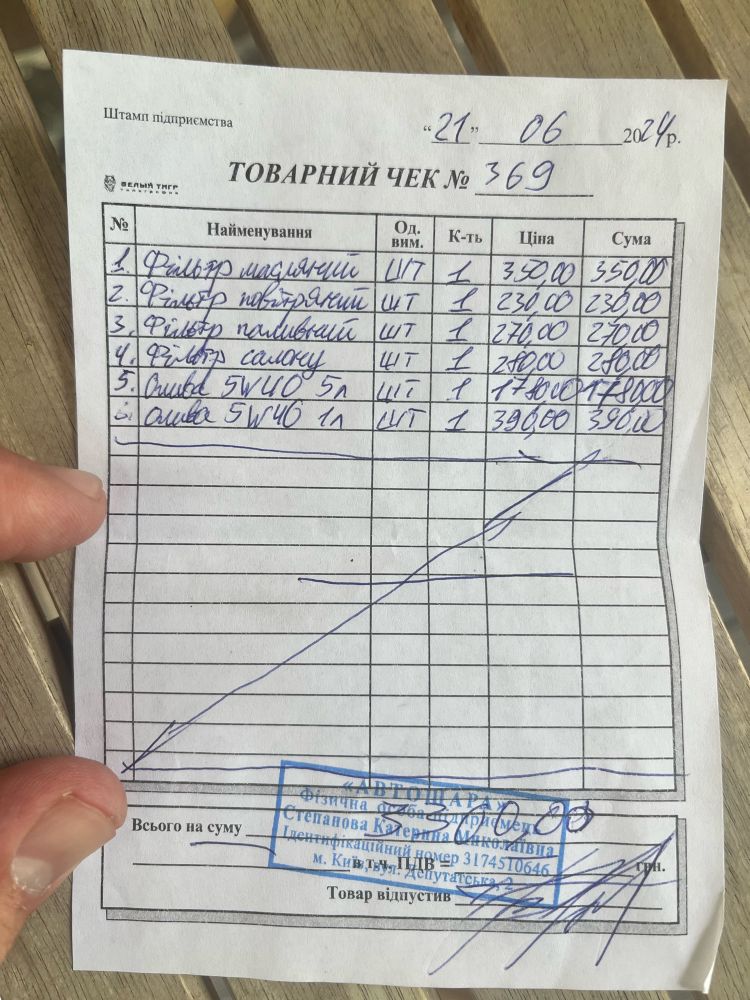 Штамп підприємства
"21" 06 2024р.
БЕЛЫЙ ТИГР
ТОВАРНИЙ ЧЕК № 369
№ Найменування Од. вим. К-ть Ціна Сума
1. Фільтр масляний шт 1 350,00 350,00
2. Фільтр повітряний шт 1 230,00 230,00
3. Фільтр паливний шт 1 270,00 270,00
4. Фільтр салону шт 1 280,00 280,00
5. Олива 5W40 5л шт 1 1780,00 1780,00
6. Олива 5W40 1л шт 1 390,00 390,00
«АВТОШАРА»
Фізична особа-підприємець
Степанова Катерина Миколаївна
Ідентифікаційний номер 3174510646
м. Київ, вул. Депутатська 2
Всього на суму 3300,00
в т.ч. ПДВ = грн.
Товар відпустив